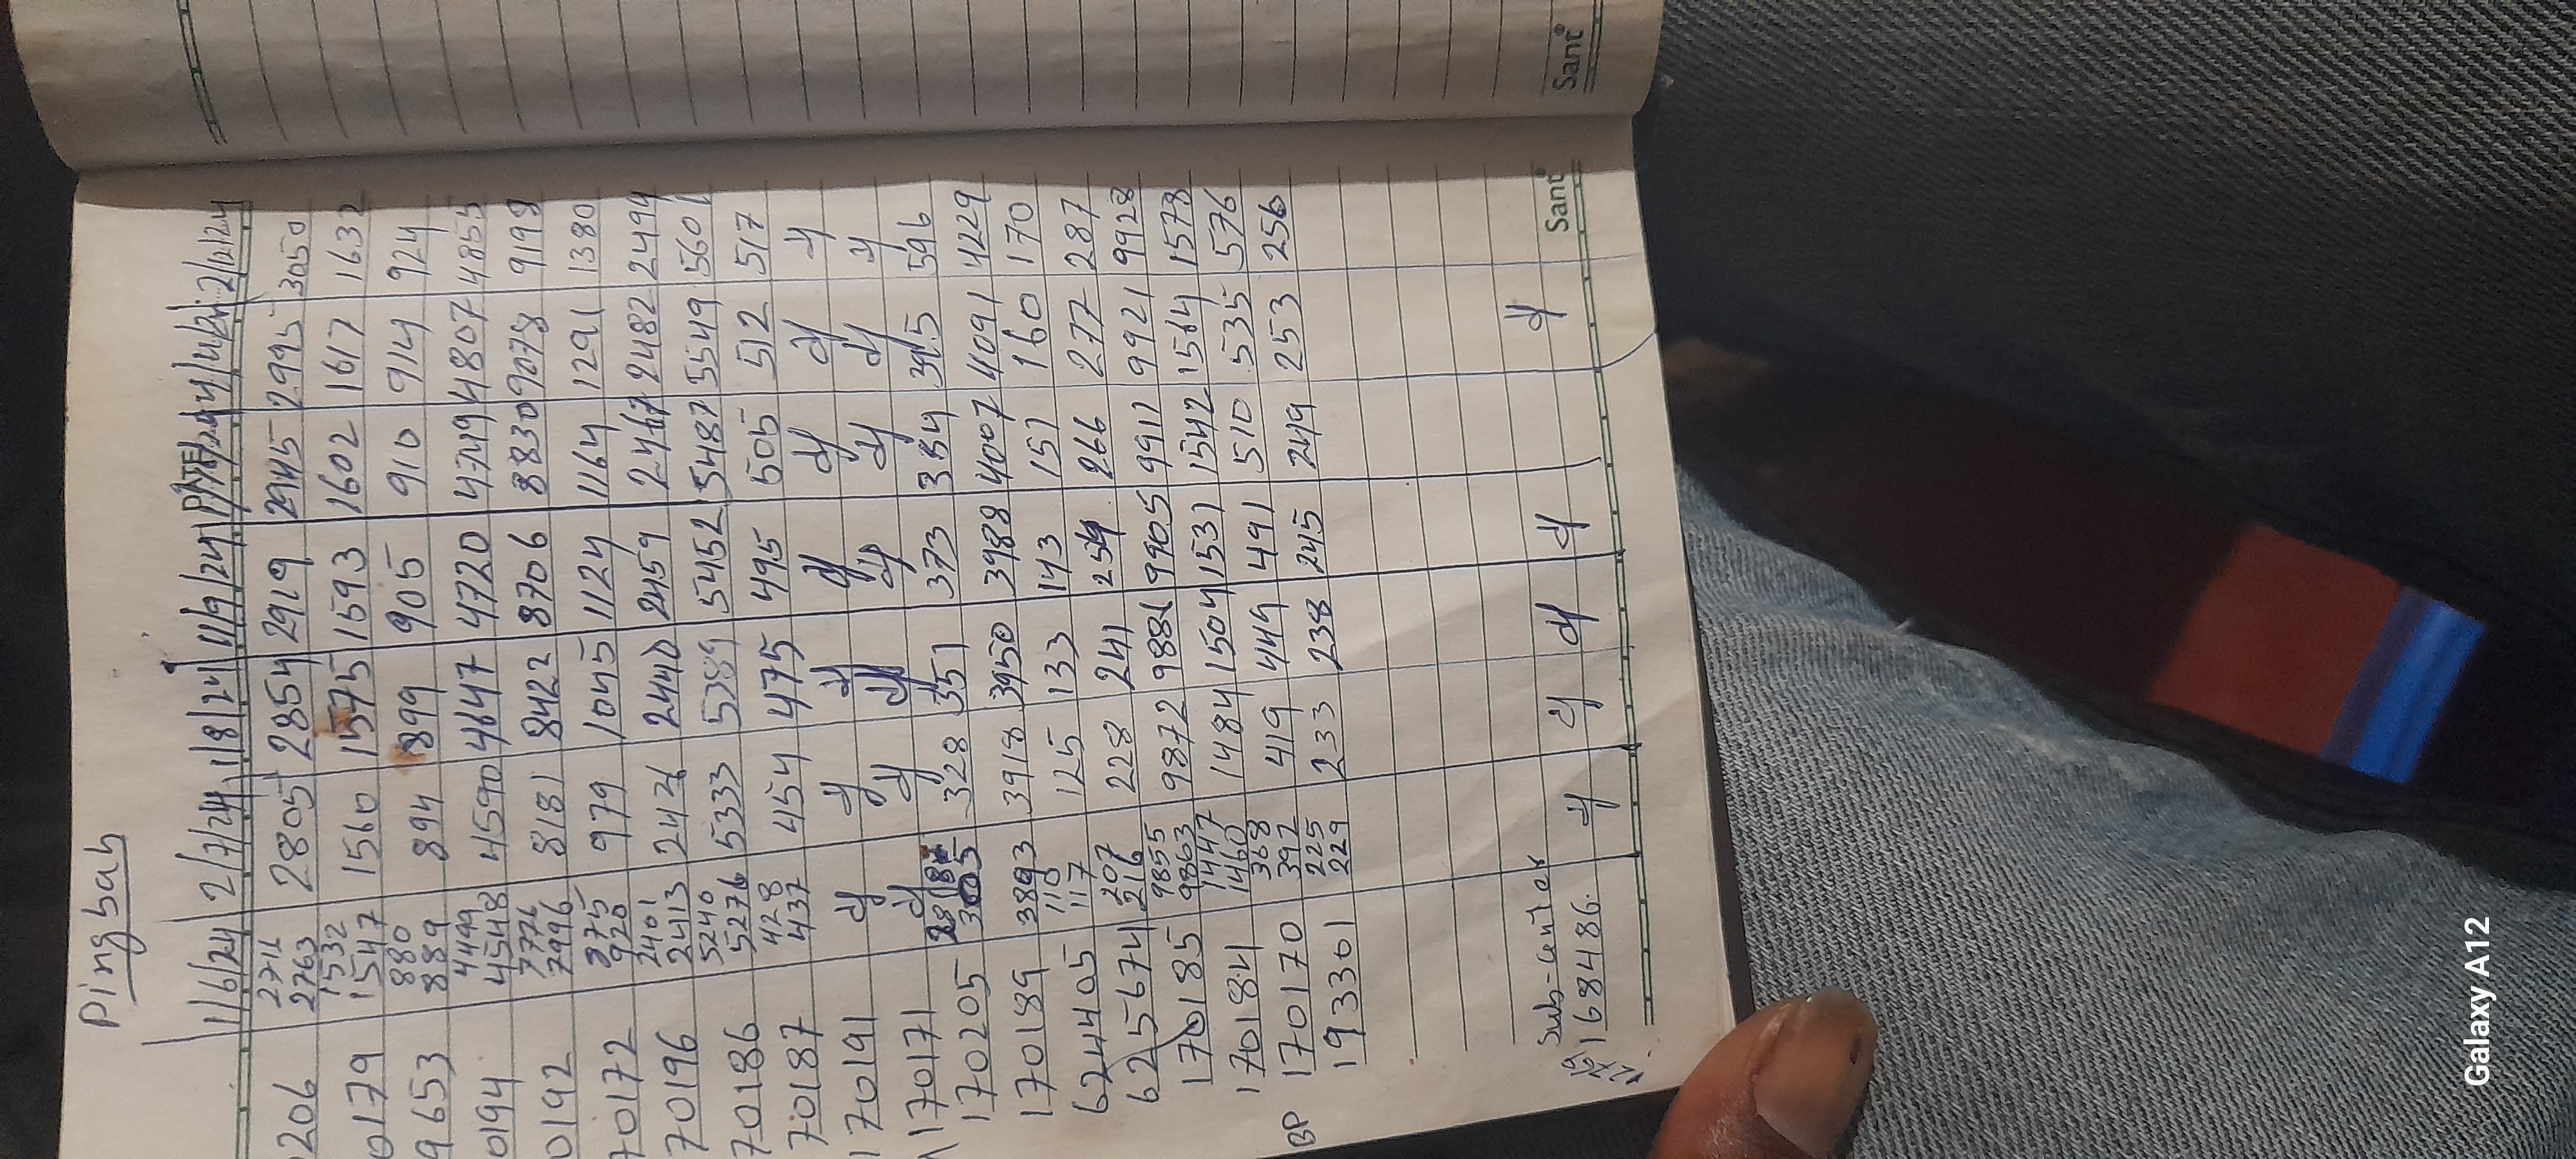 Pingbah
1/6/24 2/7/24 1/8/24 11/9/24 DATE 2/12/24
206 2711 2763 2805 2854 2919 2945 2995 3050
0179 1532 1547 1560 1575 1593 1602 1617 1632
9653 880 889 894 899 905 910 914 924
0194 4499 4548 4590 4647 4720 4749 4807 4855
0192 7776 7996 8181 8422 8706 8830 9078 9198
70172 875 920 979 1045 1124 1164 1291 1380
70196 2401 2413 2426 2440 2459 2467 2482 2494
70186 5240 5276 5333 5389 5452 5487 5549 5601
70187 428 437 454 475 495 505 512 517
170191
170171
170205 305 328 351 373 384 395 596
170189 3893 3918 3950 3988 4007 4091 4229
6244405 110 117 125 133 143 151 160 170
6225674 207 216 228 241 254 266 277 287
170185 9855 9863 9872 9881 9905 9911 9921 9928
170184 1447 1460 1484 1504 1531 1542 1564 1578
BP 170170 368 392 419 449 491 510 535 576
193301 225 229 233 238 245 249 253 256
Sub-center
1684486.
Sant
Sant
Galaxy A12